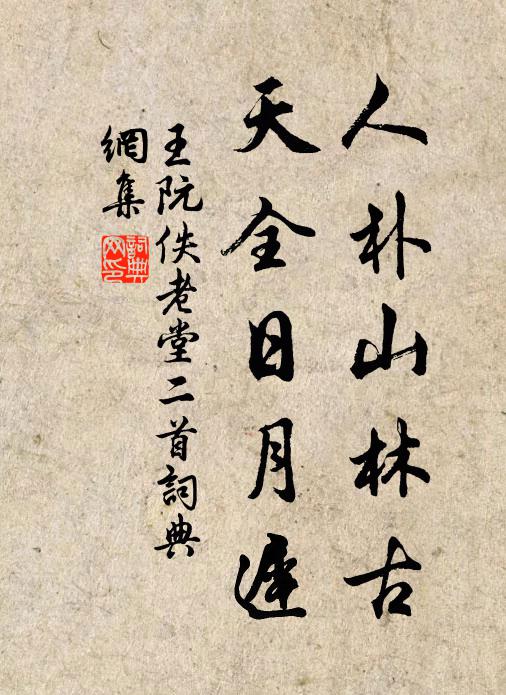 人朴山林古
天全日月遲
王阮佚老堂二首詞典
網集
詞典
网印